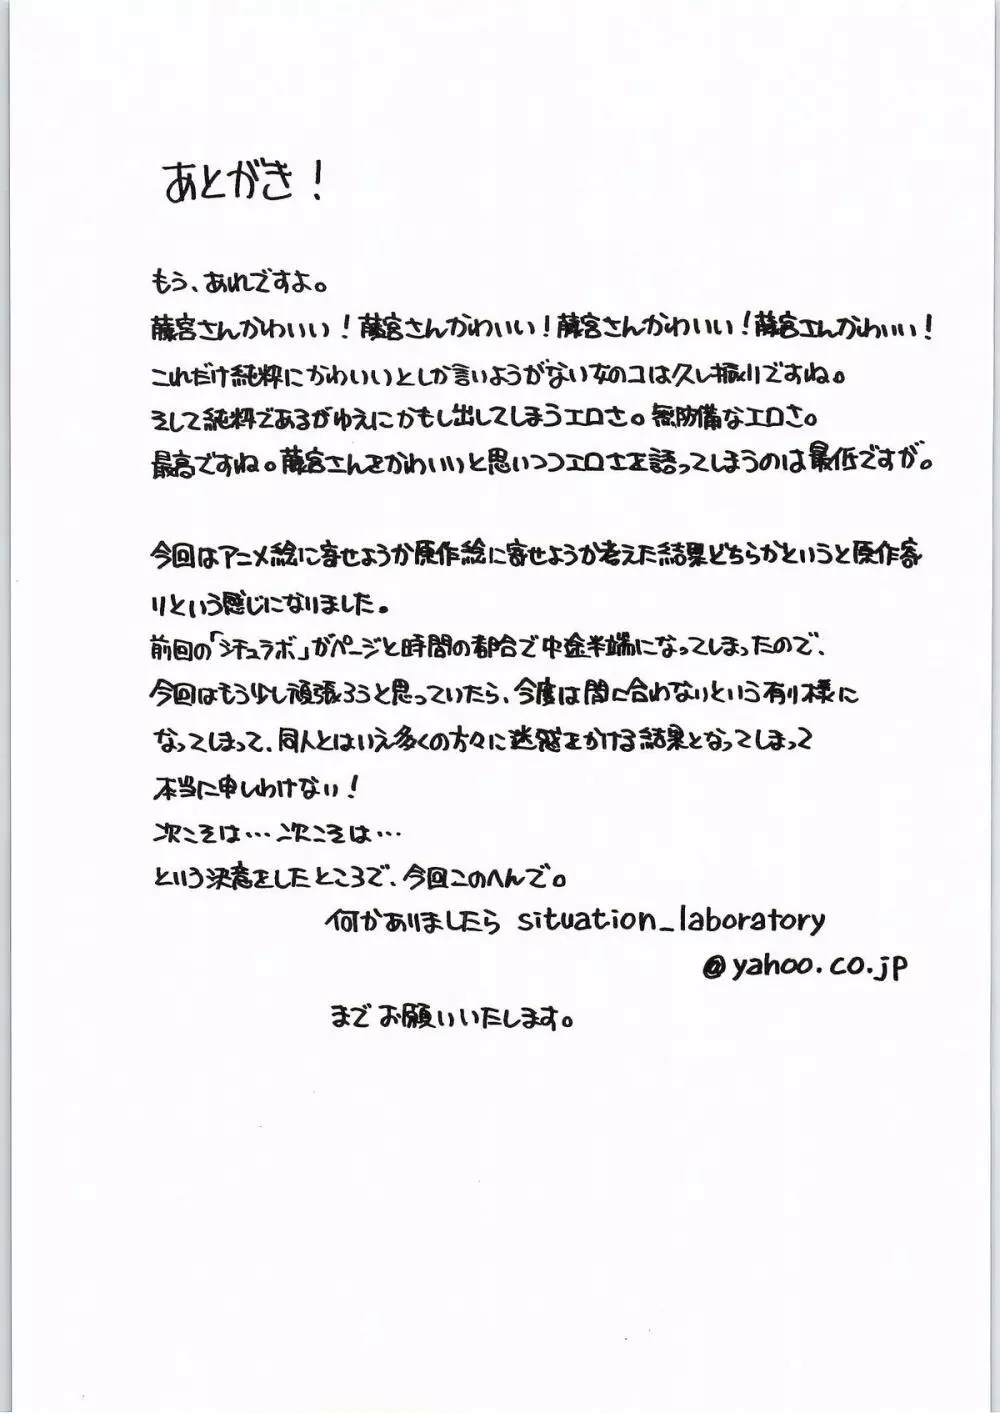 あとがき!
もう、あれですよ。
藤宮さんかわいい!藤宮さんかわいい!藤宮さんかわいい!藤宮さんかわいい!
これだけ純粋にかわいいとしか言いようがない女のコは久し振りですね。
そして純粋であるがゆえにかもし出してしまうエロさ。無防備なエロさ。
最高ですね。藤宮さんをかわいいと思いつつエロさを語ってしまうのは最低ですが。
今回はアニメ絵に寄せようか原作絵に寄せようか考えた結果どちらかというと原作寄
りという感じになりました。
前回の「シチュラボ」がページと時間の都合で中途半端になってしまったので、
今回はもう少し頑張ろうと思っていたら、今度は間に合わないという有り様に
なってしまって、同人とはいえ多くの方々に迷惑をかける結果となってしまって
本当に申しわけない!
次こそは…次こそは…
という決意をしたところで、今回このへんで。
何かありましたら situation_laboratory
@yahoo.co.jp
までお願いいたします。